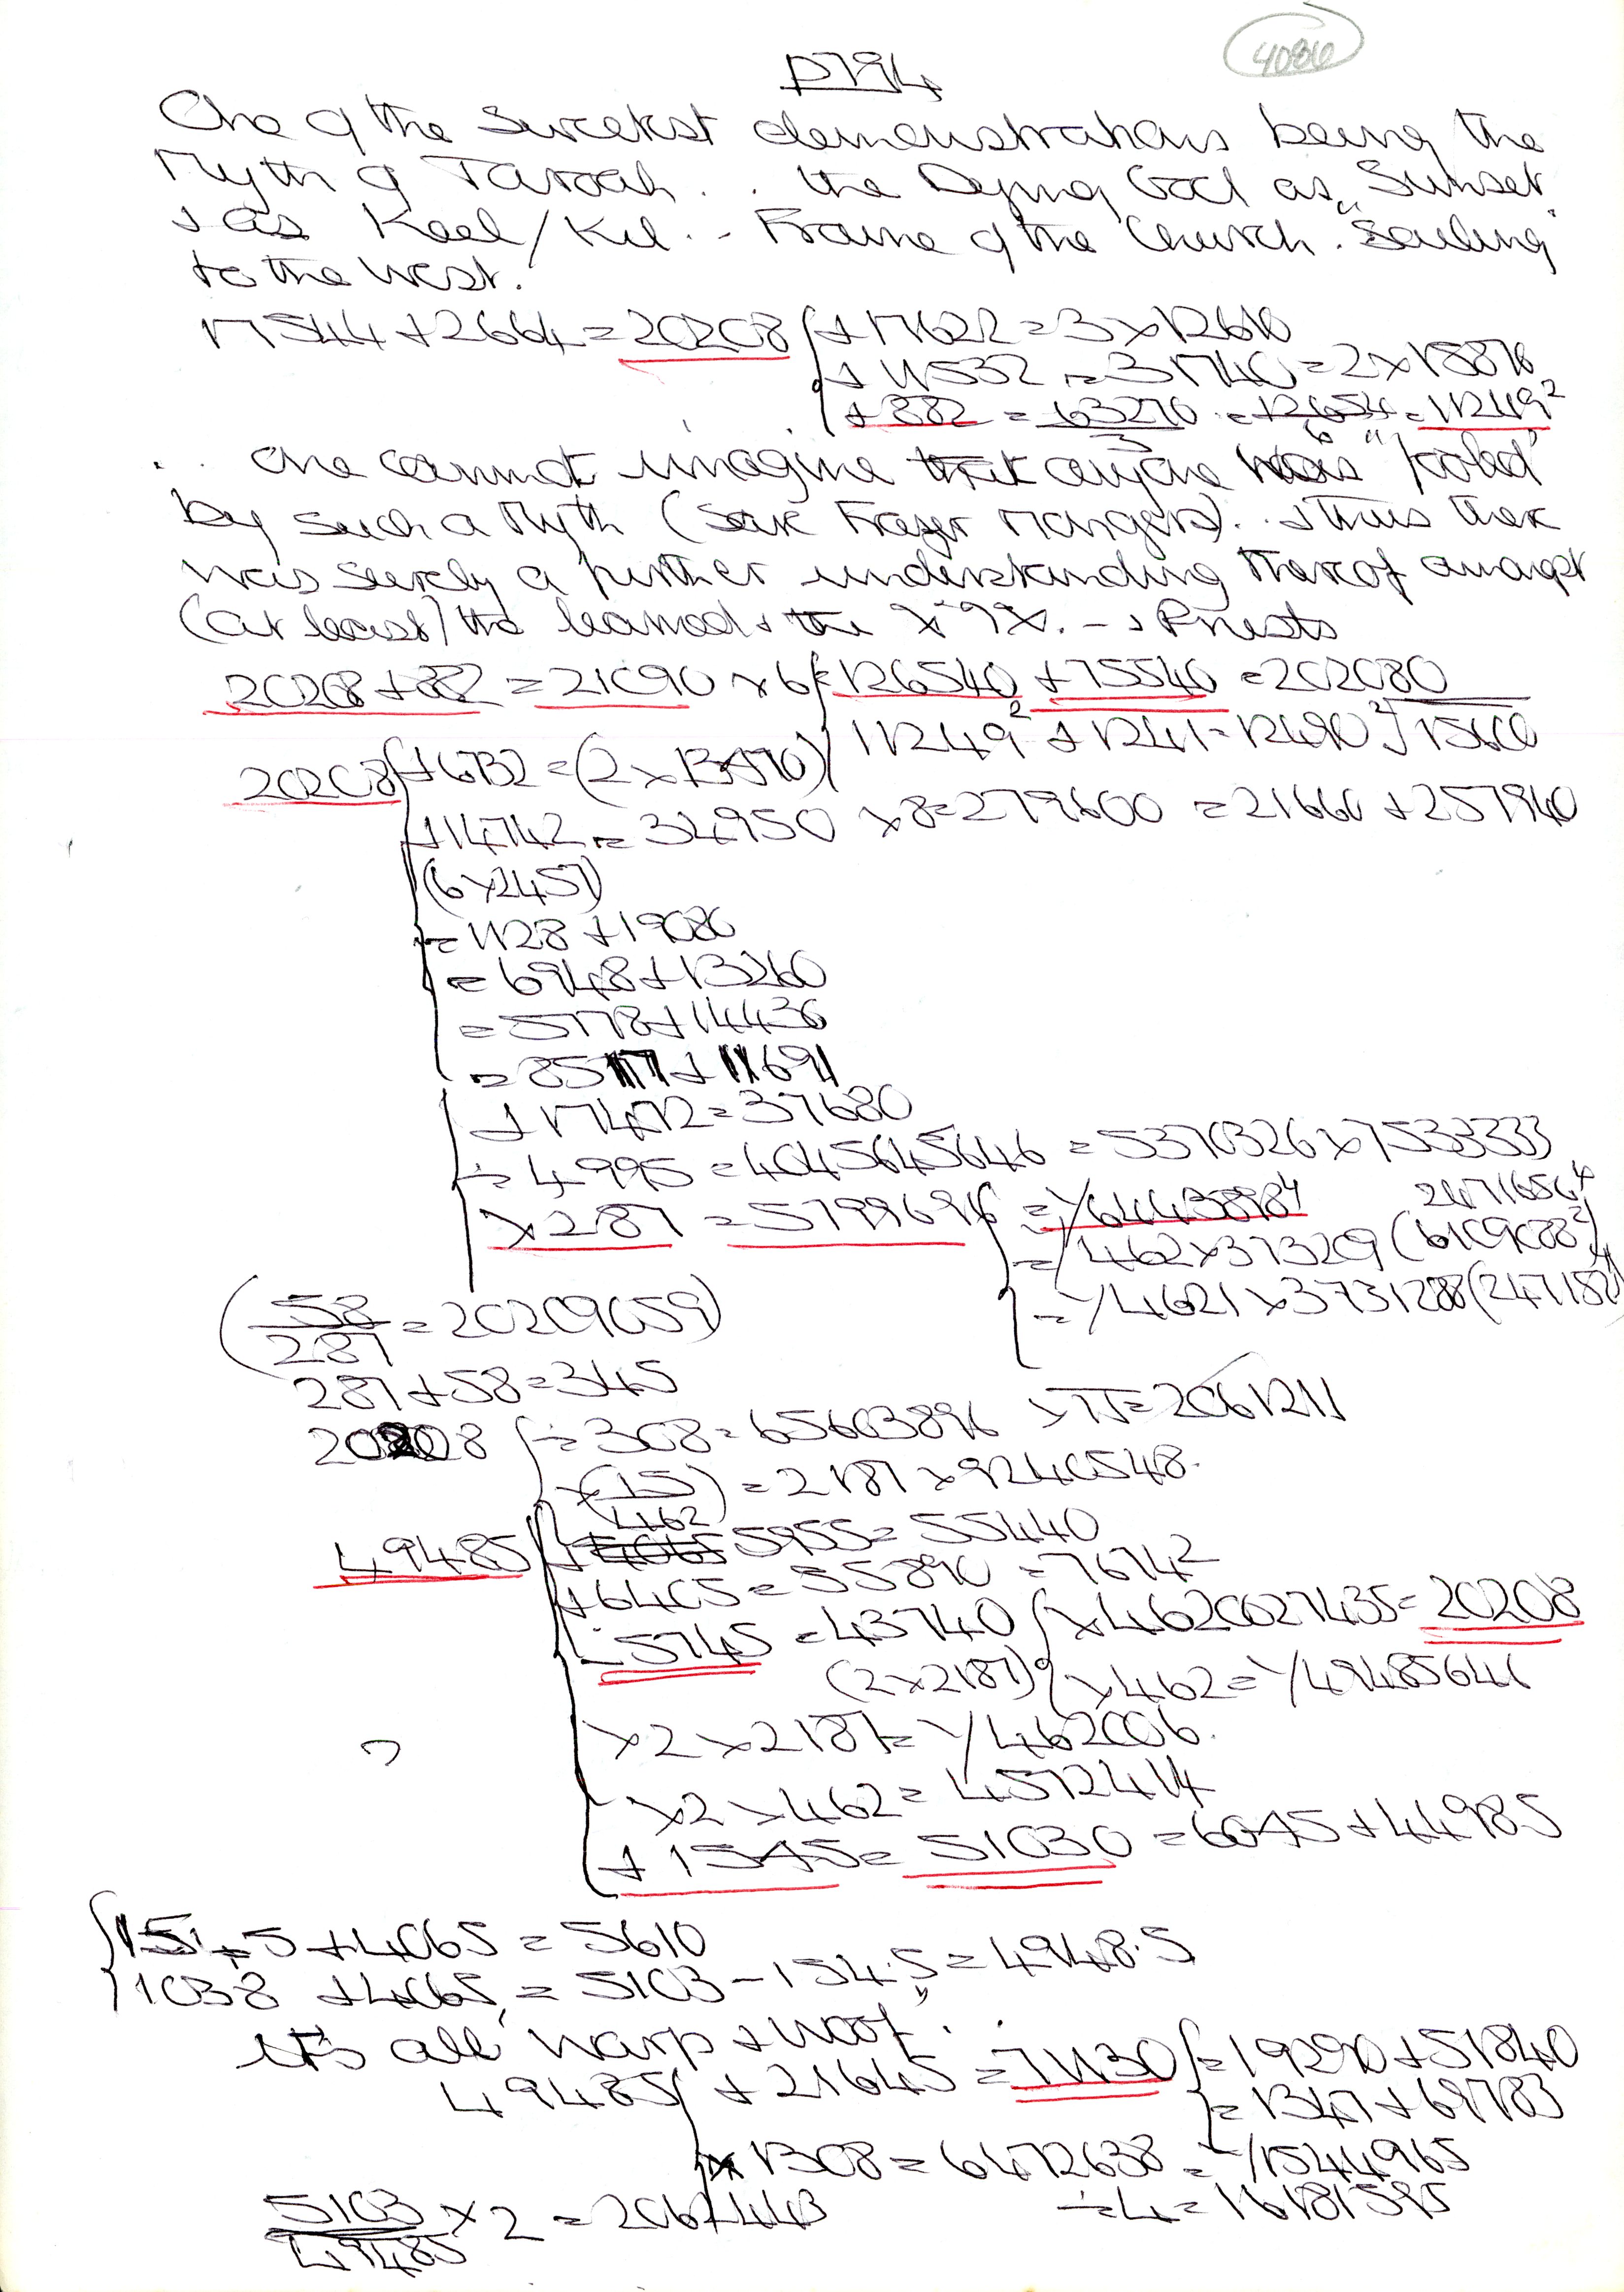 4086
P794
One of the Surcekst demonstrations being the
Myth of Taroah . . the Dying God as Sunset.
+ as Keel/Kil . - Frame of the Church. "Sailing"
to the West.
17544 + 2664 = 20208 { + 17622 = 3 x 12610
+ 11532 = 31740 = 2 x 15870
+ 882 = 63270/3 = 126540/6 = 11249²
. . One cannot imagine that anyone was "fooled"
by such a Myth (Save Frazer Mongers). . + Thus there
was surely a further understanding thereof amongst
(at least) the learned + the Priests
20208 + 882 = 21090 x 6 { = 126540 + 75540 = 202080
11249² + 1241 = 12490² } 15600
20208 { + 6732 = (2 x 13470)
+ 14742 = 34950 x 8 = 279600 = 21660 + 257940
(6 x 2457)
= 1128 + 19080
= 6948 + 13260
= 5778 + 14430
= 8517 + 11691
+ 17472 = 37680
÷ 4995 = 4045645646 = 5370326 x 7533333
x 287 = 5799696 { = √64438984 2471656
= √462 x 37329 (6109088²)
= √4621 x 3731288 (247182)
(58/287 = 20209059)
287 + 58 = 345
20208 { ÷ 308 = 65603896 x π = 2061211
x (15/462) = 2187 x 9240548.
49485 { + 5955 = 55440
+ 6405 = 55890 = 7474²
- 5745 = 43740 { x 4620027435 = 20208
(2 x 2187) { x 462 = √49485641
x 2 x 2187 = √462006.
x 2 x 462 = 4572414
+ 1545 = 51030 = 6045 + 44985
{ 1545 + 4065 = 5610
1038 + 4065 = 5103 - 154.5 = 4948.5
It's all "warp + woof" . .
49485 { + 21645 = 71130 { = 19290 + 51840
= 1347 + 69783
x 1308 = 6472638 = √1544965
÷ 4 = 16181595
5103/49485 x 2 = 2062443